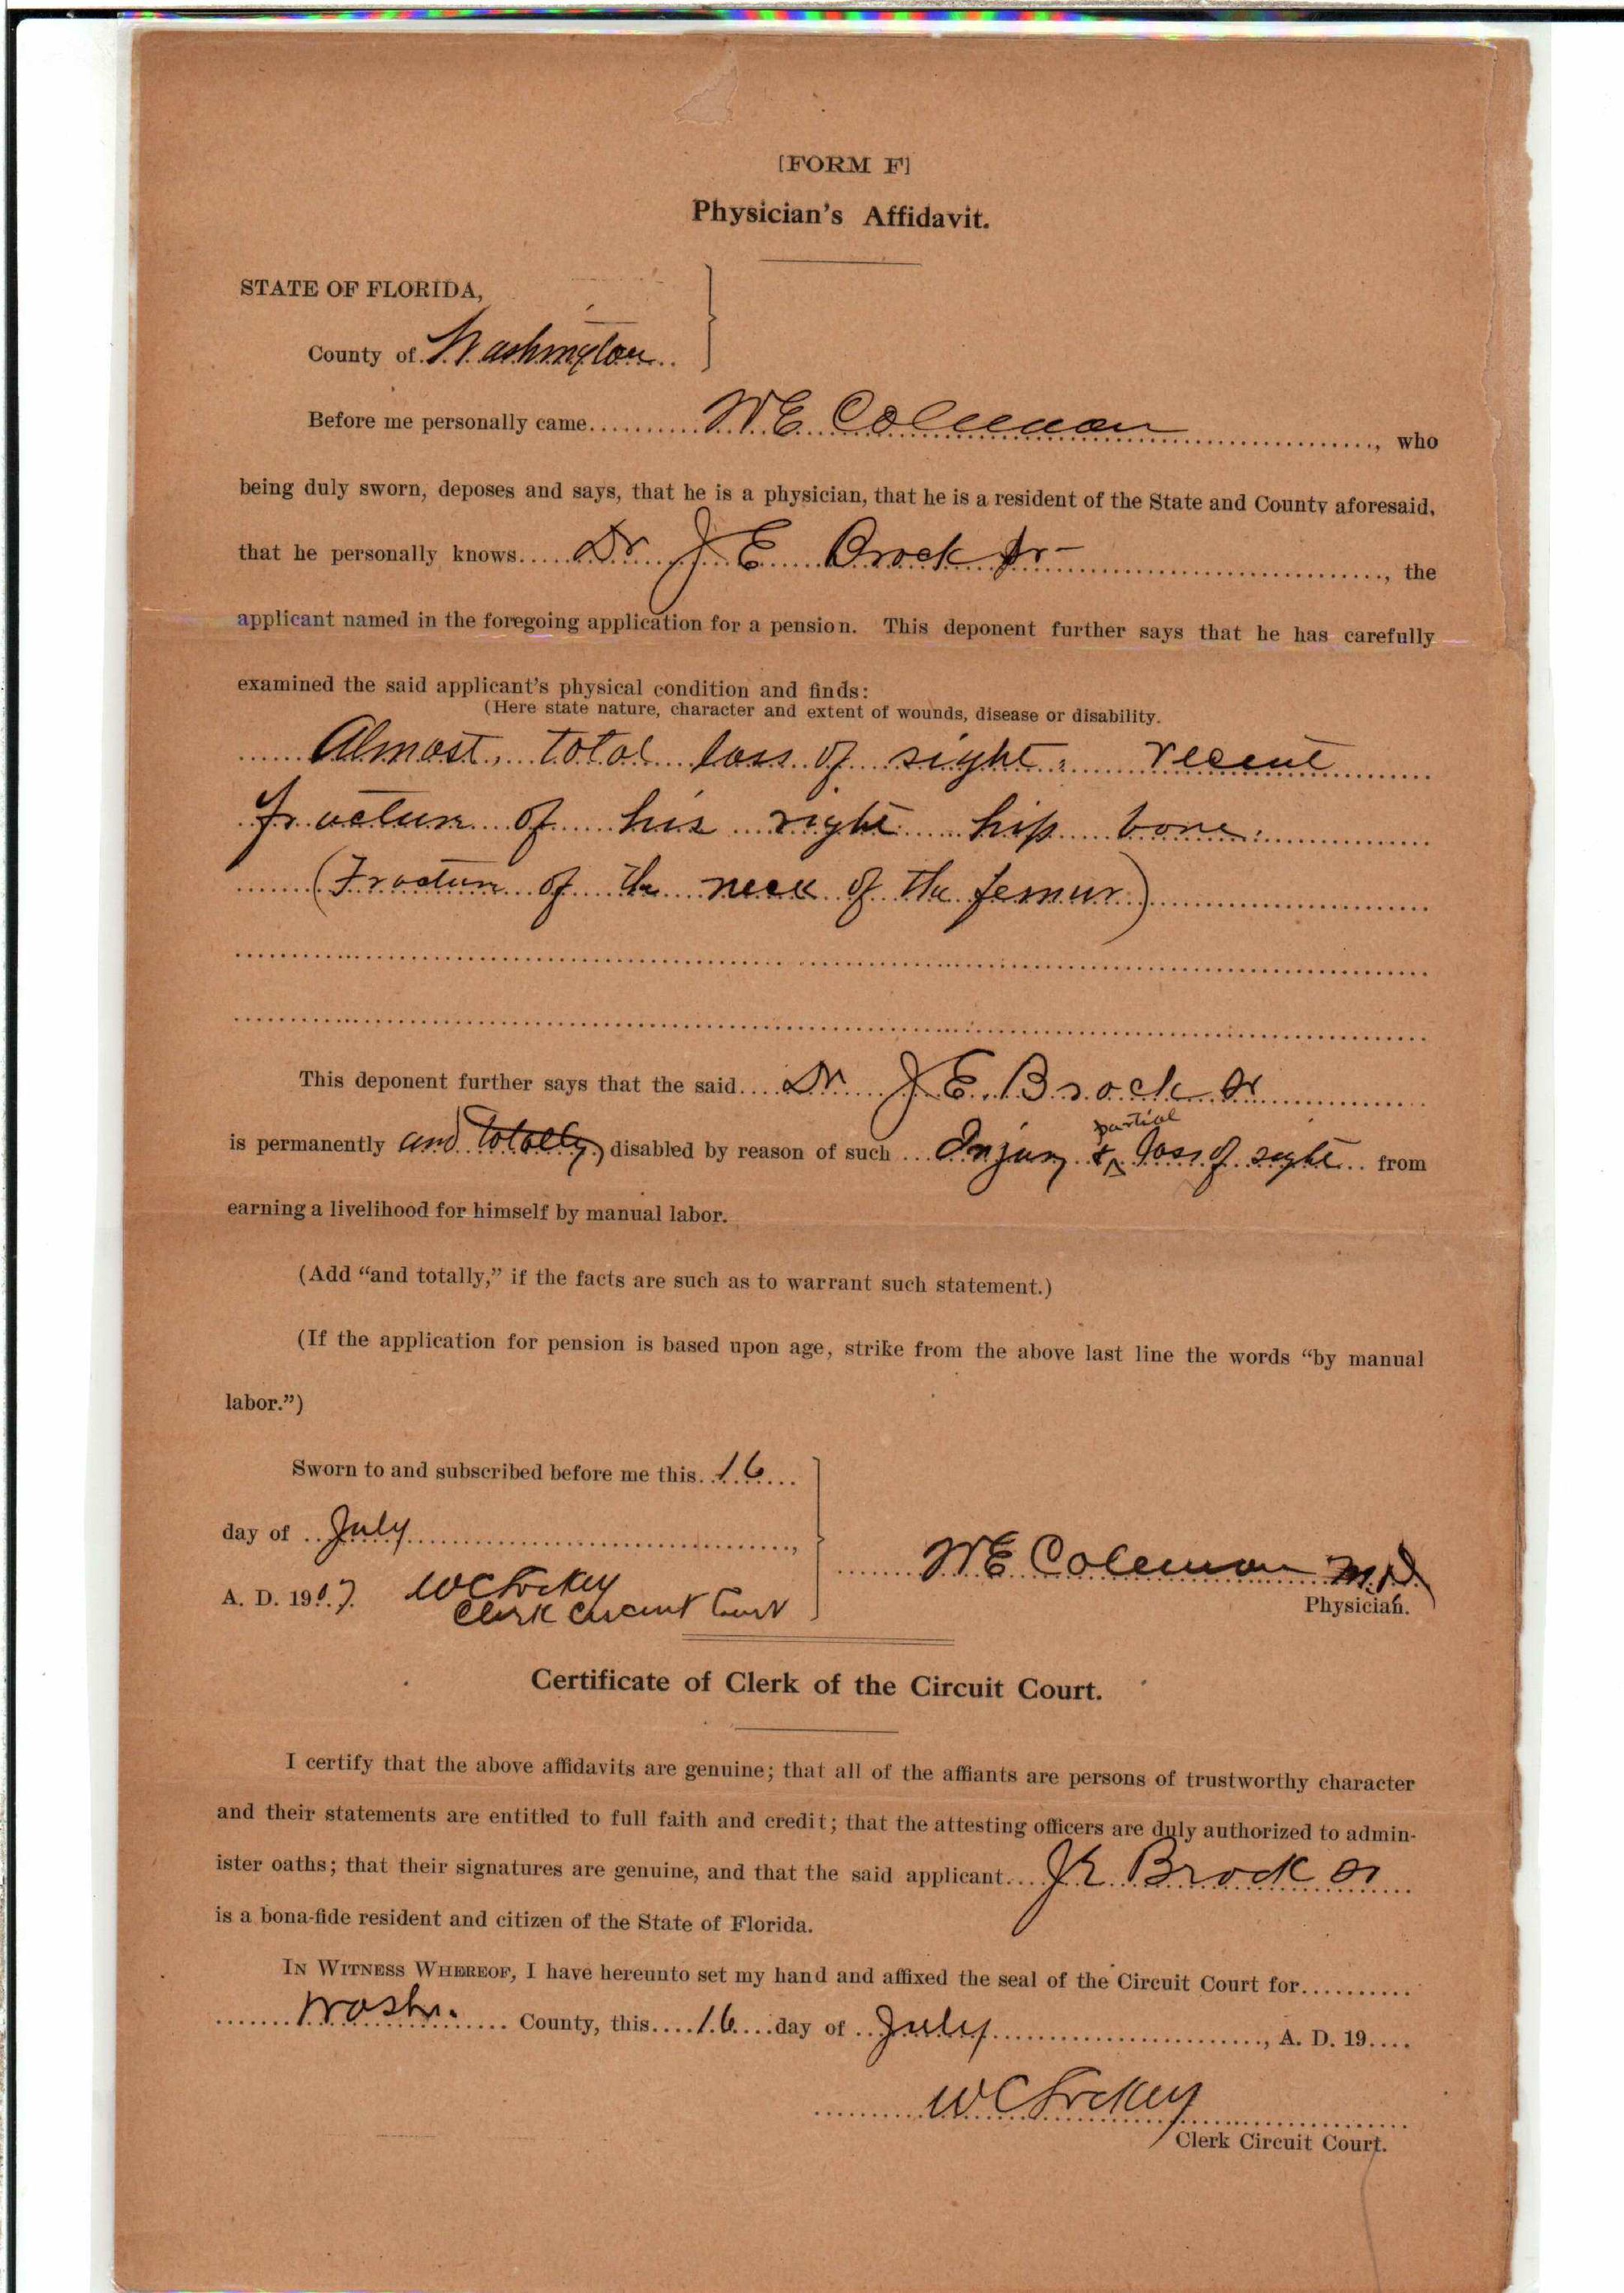 [FORM F]
Physician's Affidavit.
STATE OF FLORIDA,
County of Washington
Before me personally came W E Coleman, who
being duly sworn, deposes and says, that he is a physician, that he is a resident of the State and County aforesaid,
that he personally knows Dr J E Brock Sr, the
applicant named in the foregoing application for a pension. This deponent further says that he has carefully
examined the said applicant's physical condition and finds:
(Here state nature, character and extent of wounds, disease or disability.
Almost total loss of sight: recent
fracture of his right hip bone:
(Fracture of the neck of the femur)
This deponent further says that the said Dr J E Brock Sr
partial
is permanently and totally, disabled by reason of such Injury & loss of sight from
earning a livelihood for himself by manual labor.
(Add “and totally,” if the facts are such as to warrant such statement.)
(If the application for pension is based upon age, strike from the above last line the words “by manual
labor.”)
Sworn to and subscribed before me this 16
day of July,
A. D. 1907. W C
Clerk Circuit Court
W E Coleman M.D.
Physician.
Certificate of Clerk of the Circuit Court.
I certify that the above affidavits are genuine; that all of the affiants are persons of trustworthy character
and their statements are entitled to full faith and credit; that the attesting officers are duly authorized to admin-
ister oaths; that their signatures are genuine, and that the said applicant J E Brock Sr
is a bona-fide resident and citizen of the State of Florida.
IN WITNESS WHEREOF, I have hereunto set my hand and affixed the seal of the Circuit Court for
Washn. County, this 16 day of July, A. D. 19
W C
Clerk Circuit Court.